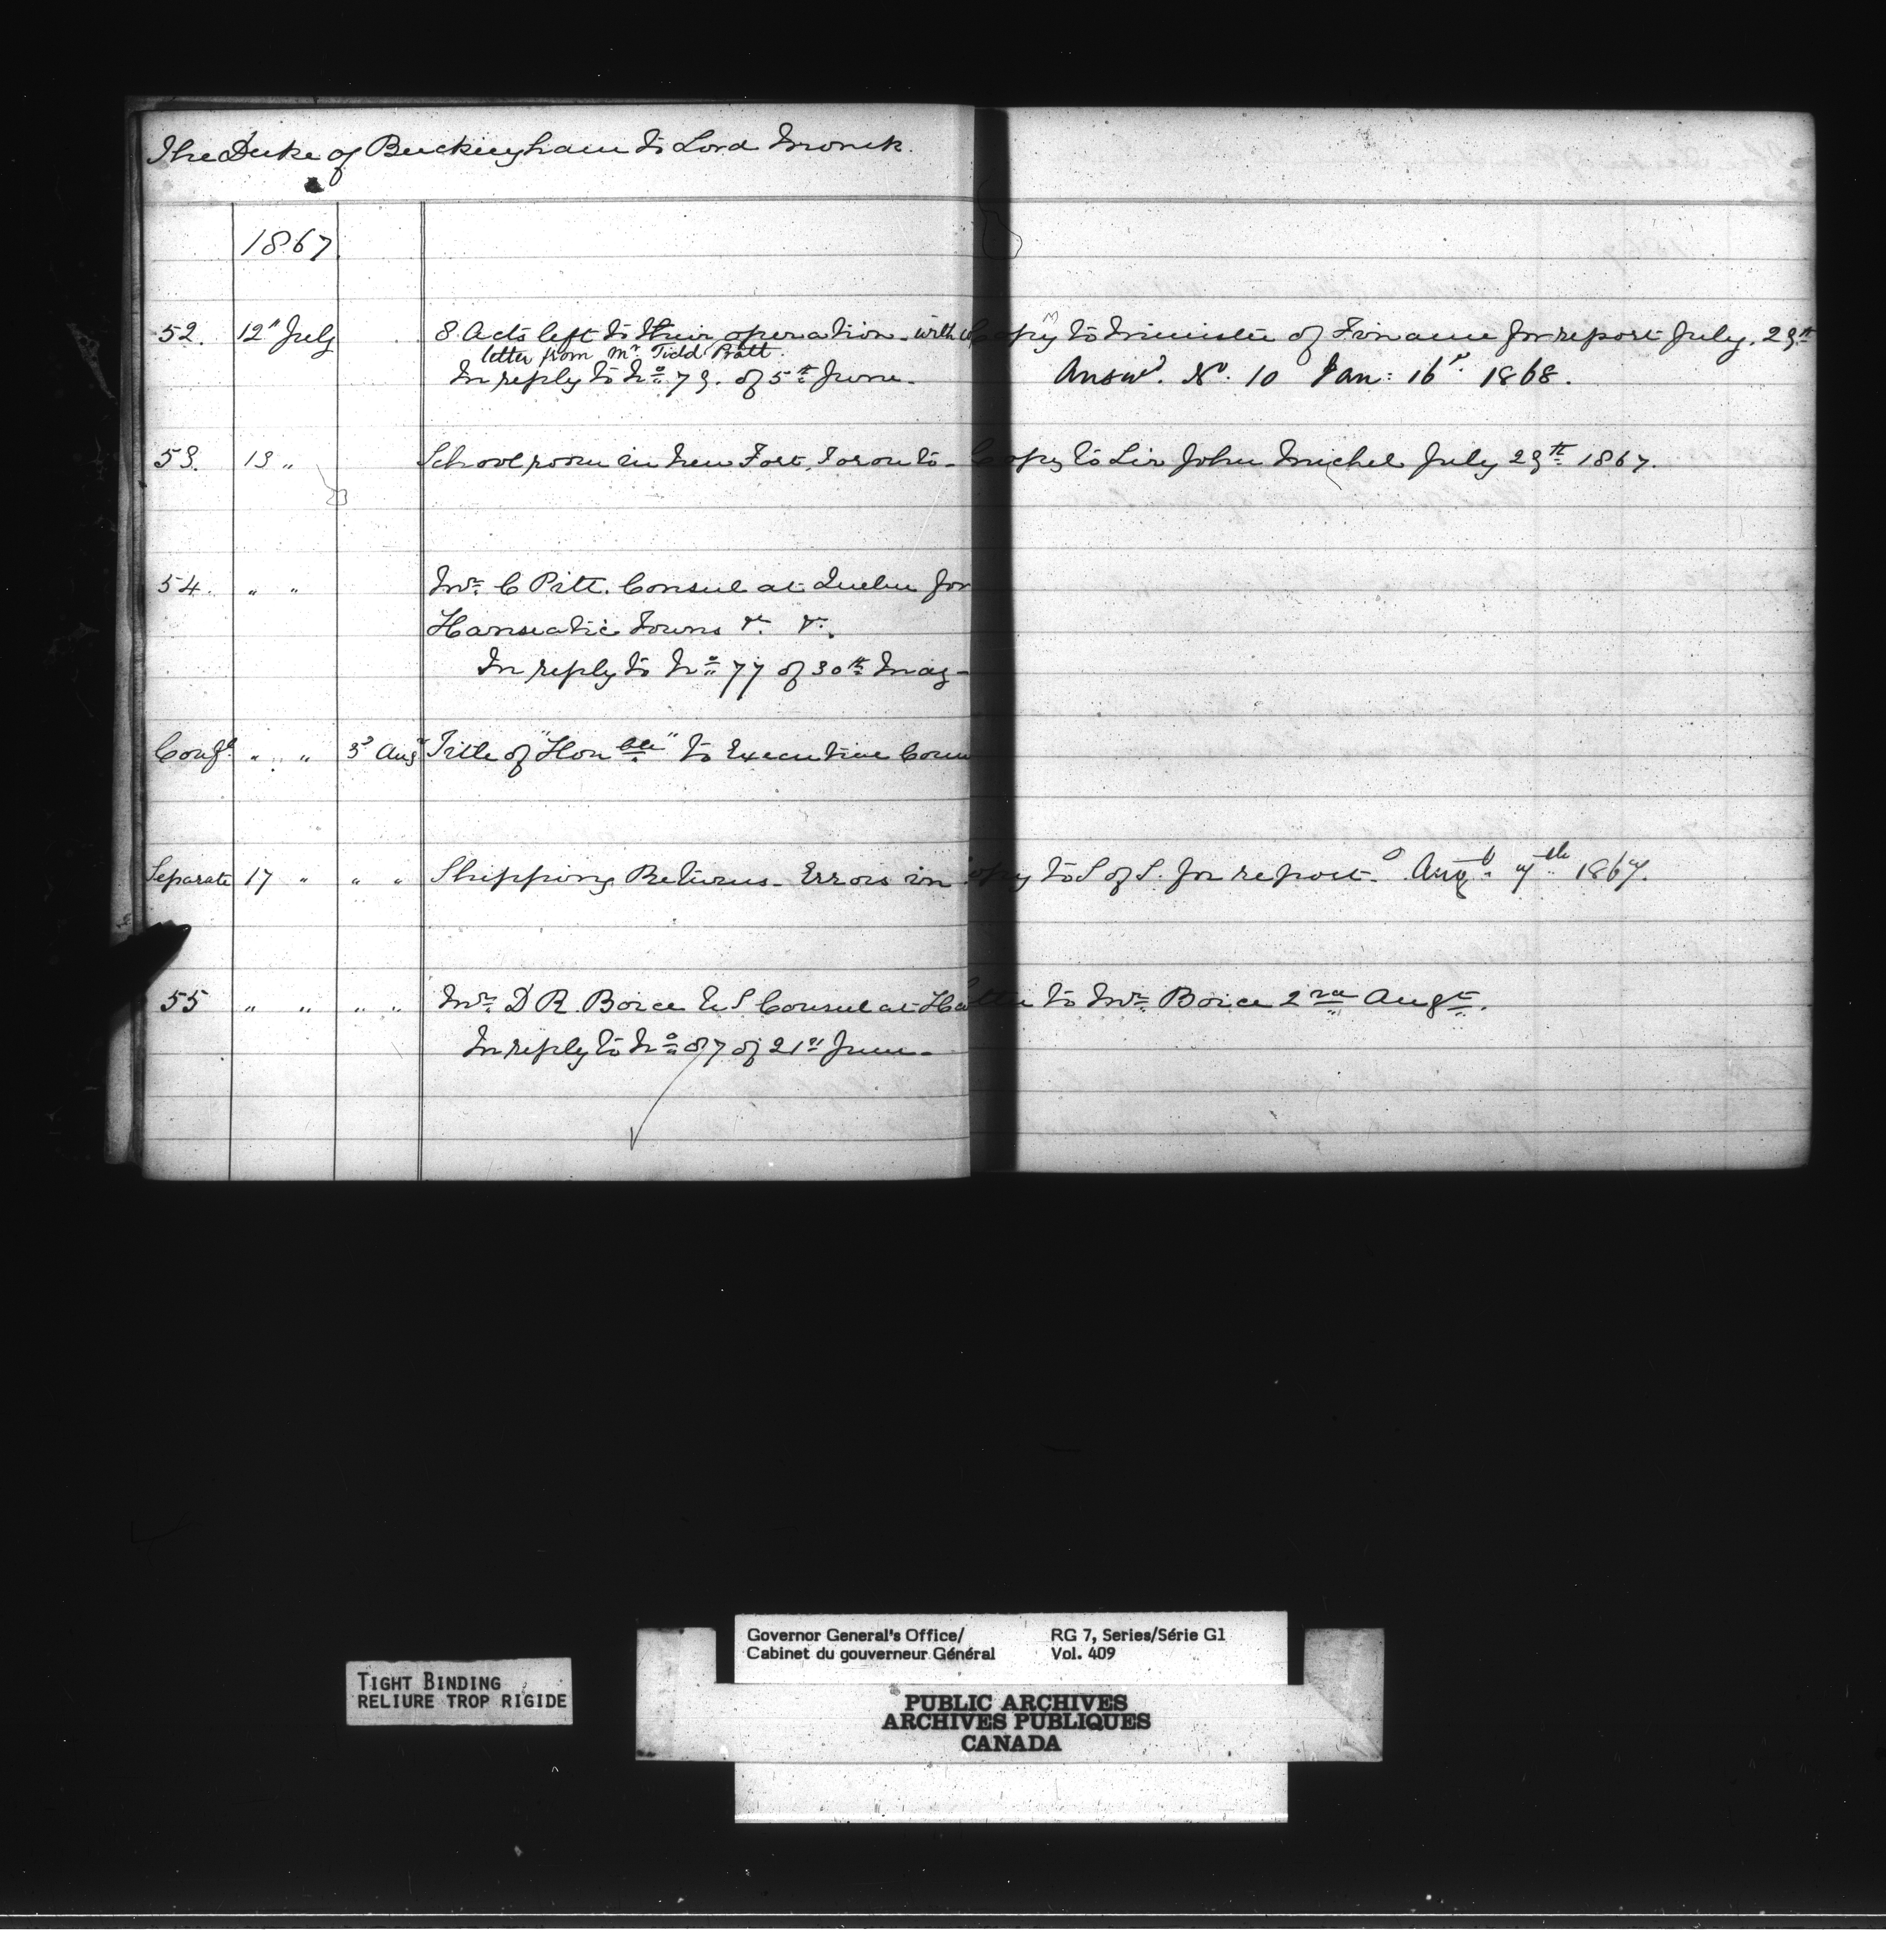 The Duke of Buckingham to Lord Monck.
1867
52. 12" July 8 Acts left to their operation - with Copy to Minister of Finance for report July. 29th
letter from Mr Tidd Pratt.
In reply to No 79. of 5th June. Answd. No. 10 Jan: 16th 1868.
53. 13 " School room in New Fort, Toronto - Copy to Sir John Michel July 29th 1867.
54. " " Mr C Pitt. Consul at Quebec for
Hanseatic Towns &c. &c.
In reply to No 77 of 30th May -
Confl. " " 3d Aug Title of "Honble" to Executive Coun
Separate 17 " " " Shipping Returns - Errors in Copy to S of S. for report. Augt 7th 1867.
55 " " " " Mr D R Boice U S Consul at Ha tter to Mr Boice 2nd Augt.
In reply to No 87 of 21st June -
TIGHT BINDING
RELIURE TROP RIGIDE
Governor General's Office/ RG 7, Series/Série G1
Cabinet du gouverneur Général Vol. 409
PUBLIC ARCHIVES
ARCHIVES PUBLIQUES
CANADA